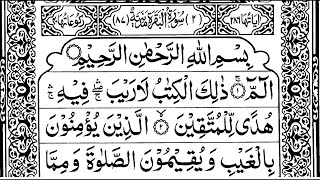 اٰیَاتُهَا ٢٨٦ (٢) سُوْرَةُ الْبَقَرَةِ مَدَنِيَّةٌ (٨٧) رُكُوْعَاتُهَا ٤٠
بِسْمِ اللّٰهِ الرَّحْمٰنِ الرَّحِيْمِ
الٓمّٓ ۚ ذٰلِكَ الْكِتٰبُ لَا رَيْبَ ۛ فِيْهِ ۛ
هُدًى لِّلْمُتَّقِيْنَ ۙ الَّذِيْنَ يُؤْمِنُوْنَ
بِالْغَيْبِ وَيُقِيْمُوْنَ الصَّلٰوةَ وَمِمَّا